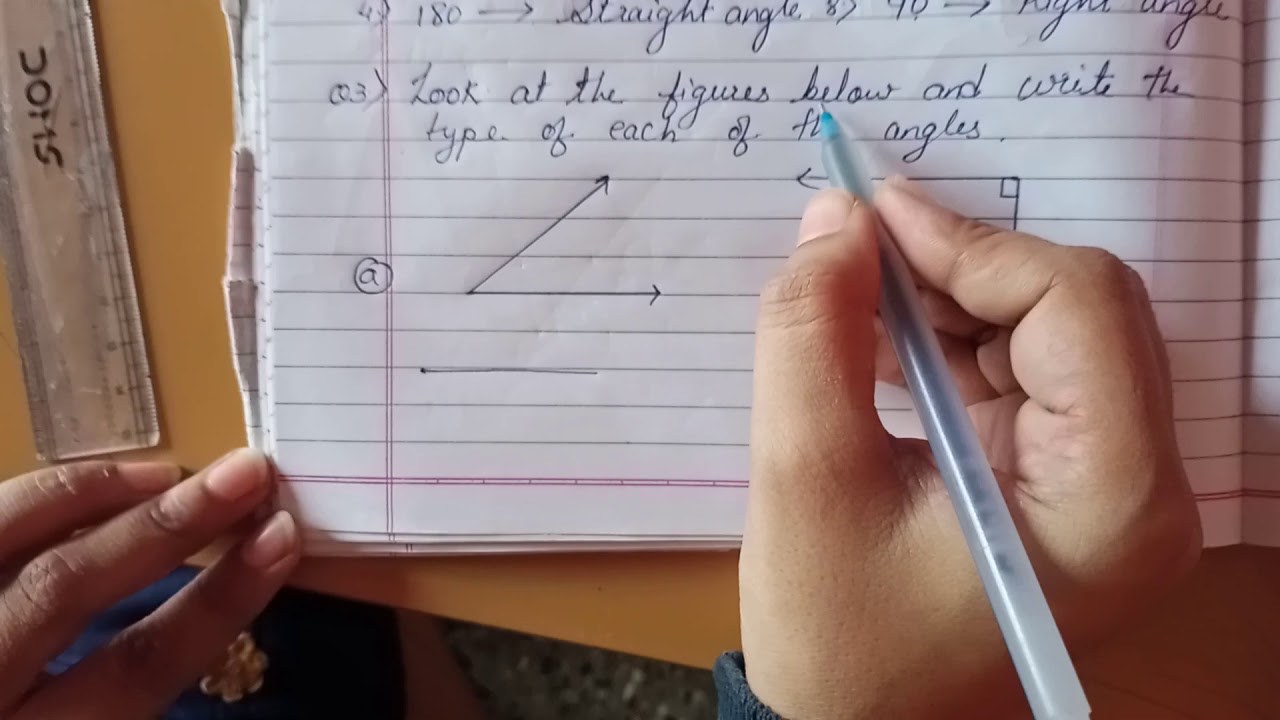 4) 180 → Straight angle 8) 90 → Right angle
Q3) Look at the figures below and write the
type of each of angles.
a